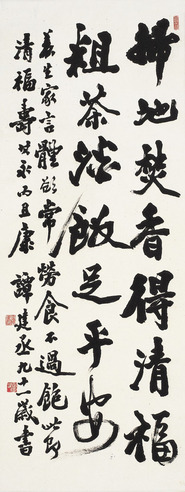 掃地焚香得清福
粗茶淡飯足平安
養生家言體欲常勞食不過飽此即
清福壽世永而且康 譚建丞九十一歲書